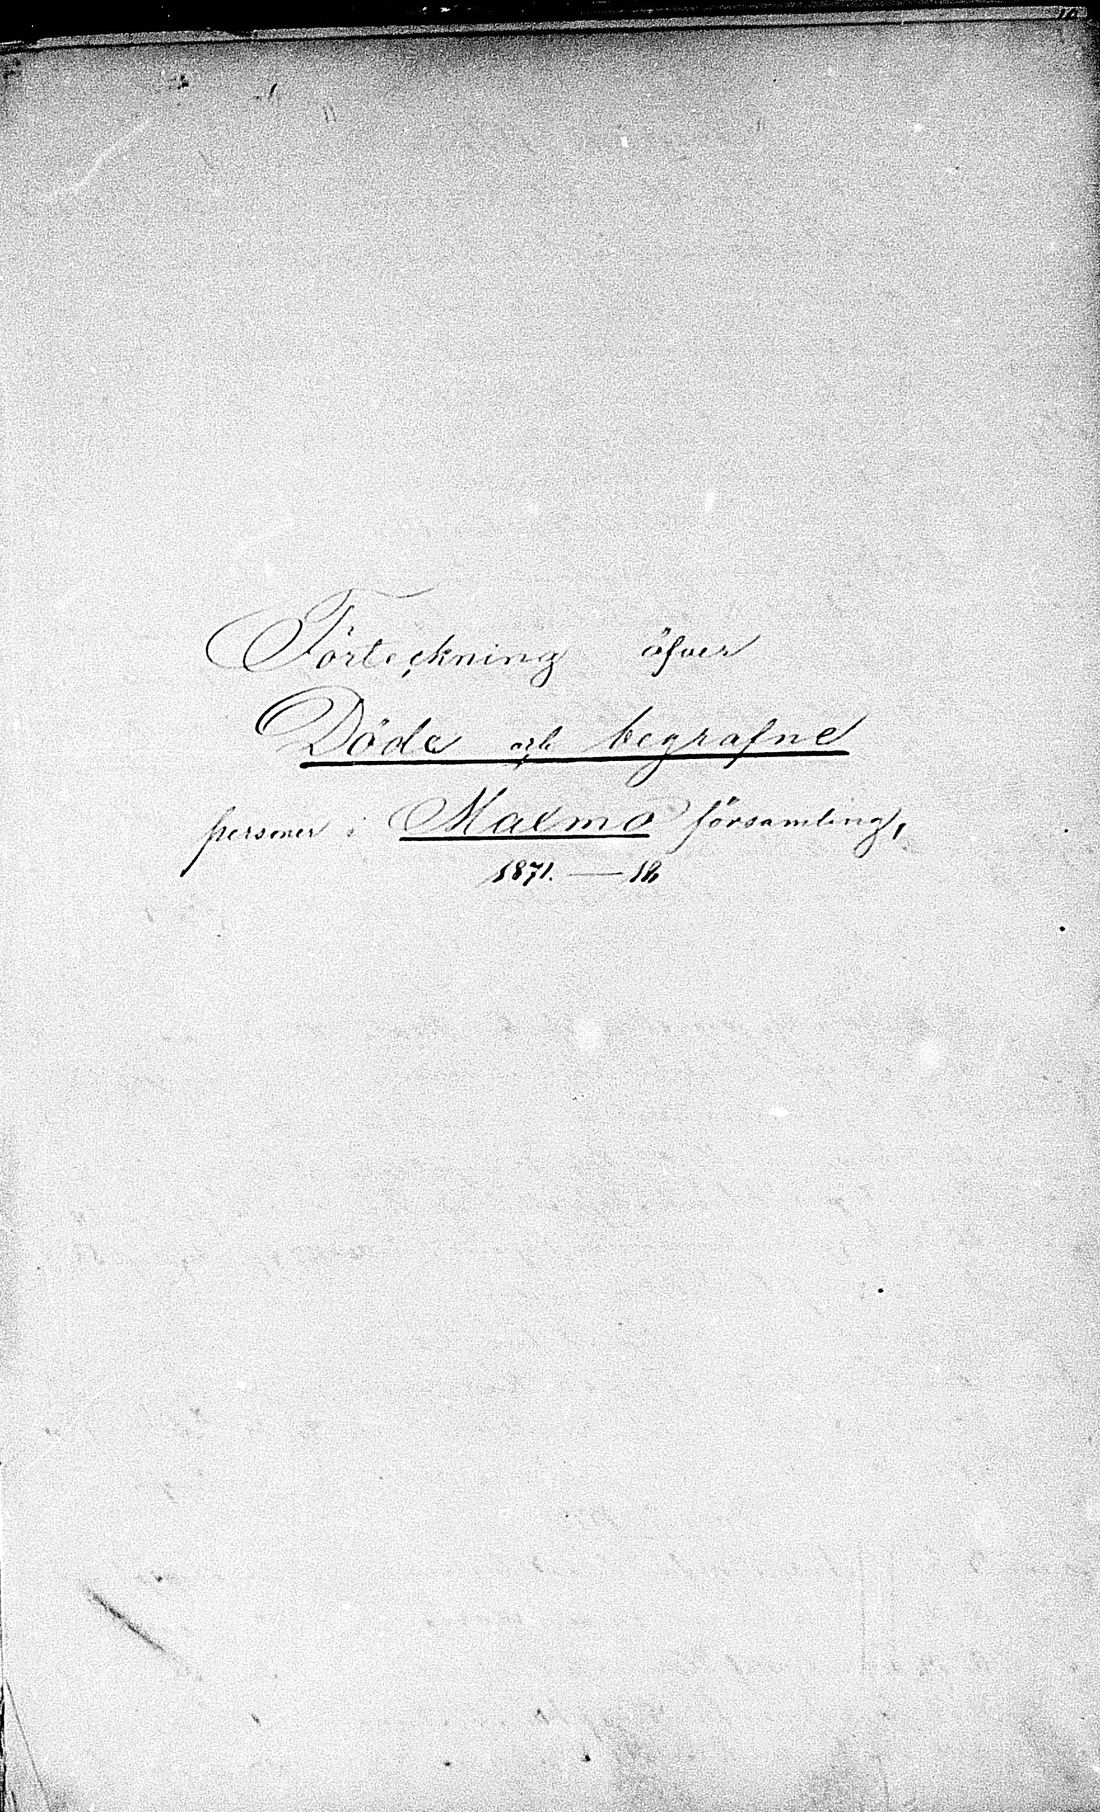 Förteckning öfver
Döde och begrafne
personer i Malmö församling,
1871. — 18